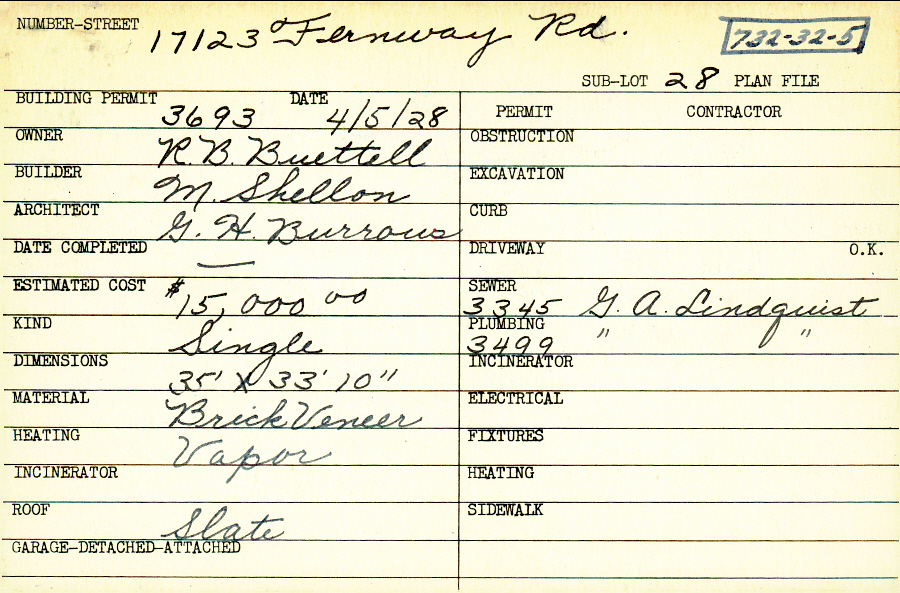 NUMBER-STREET 17123 Fernway Rd. 732-32-5
SUB-LOT 28 PLAN FILE
BUILDING PERMIT 3693 DATE 4/5/28
PERMIT CONTRACTOR
OWNER R. B. Buettell
OBSTRUCTION
BUILDER M. Shellon
EXCAVATION
ARCHITECT G. H. Burrows
CURB
DATE COMPLETED —
DRIVEWAY O.K.
ESTIMATED COST $15,000 00
SEWER 3345 G. A. Lindquist
KIND Single
PLUMBING 3499 " "
DIMENSIONS 35' X 33' 10"
INCINERATOR
MATERIAL Brick Veneer
ELECTRICAL
HEATING Vapor
FIXTURES
INCINERATOR
HEATING
ROOF Slate
SIDEWALK
GARAGE-DETACHED-ATTACHED